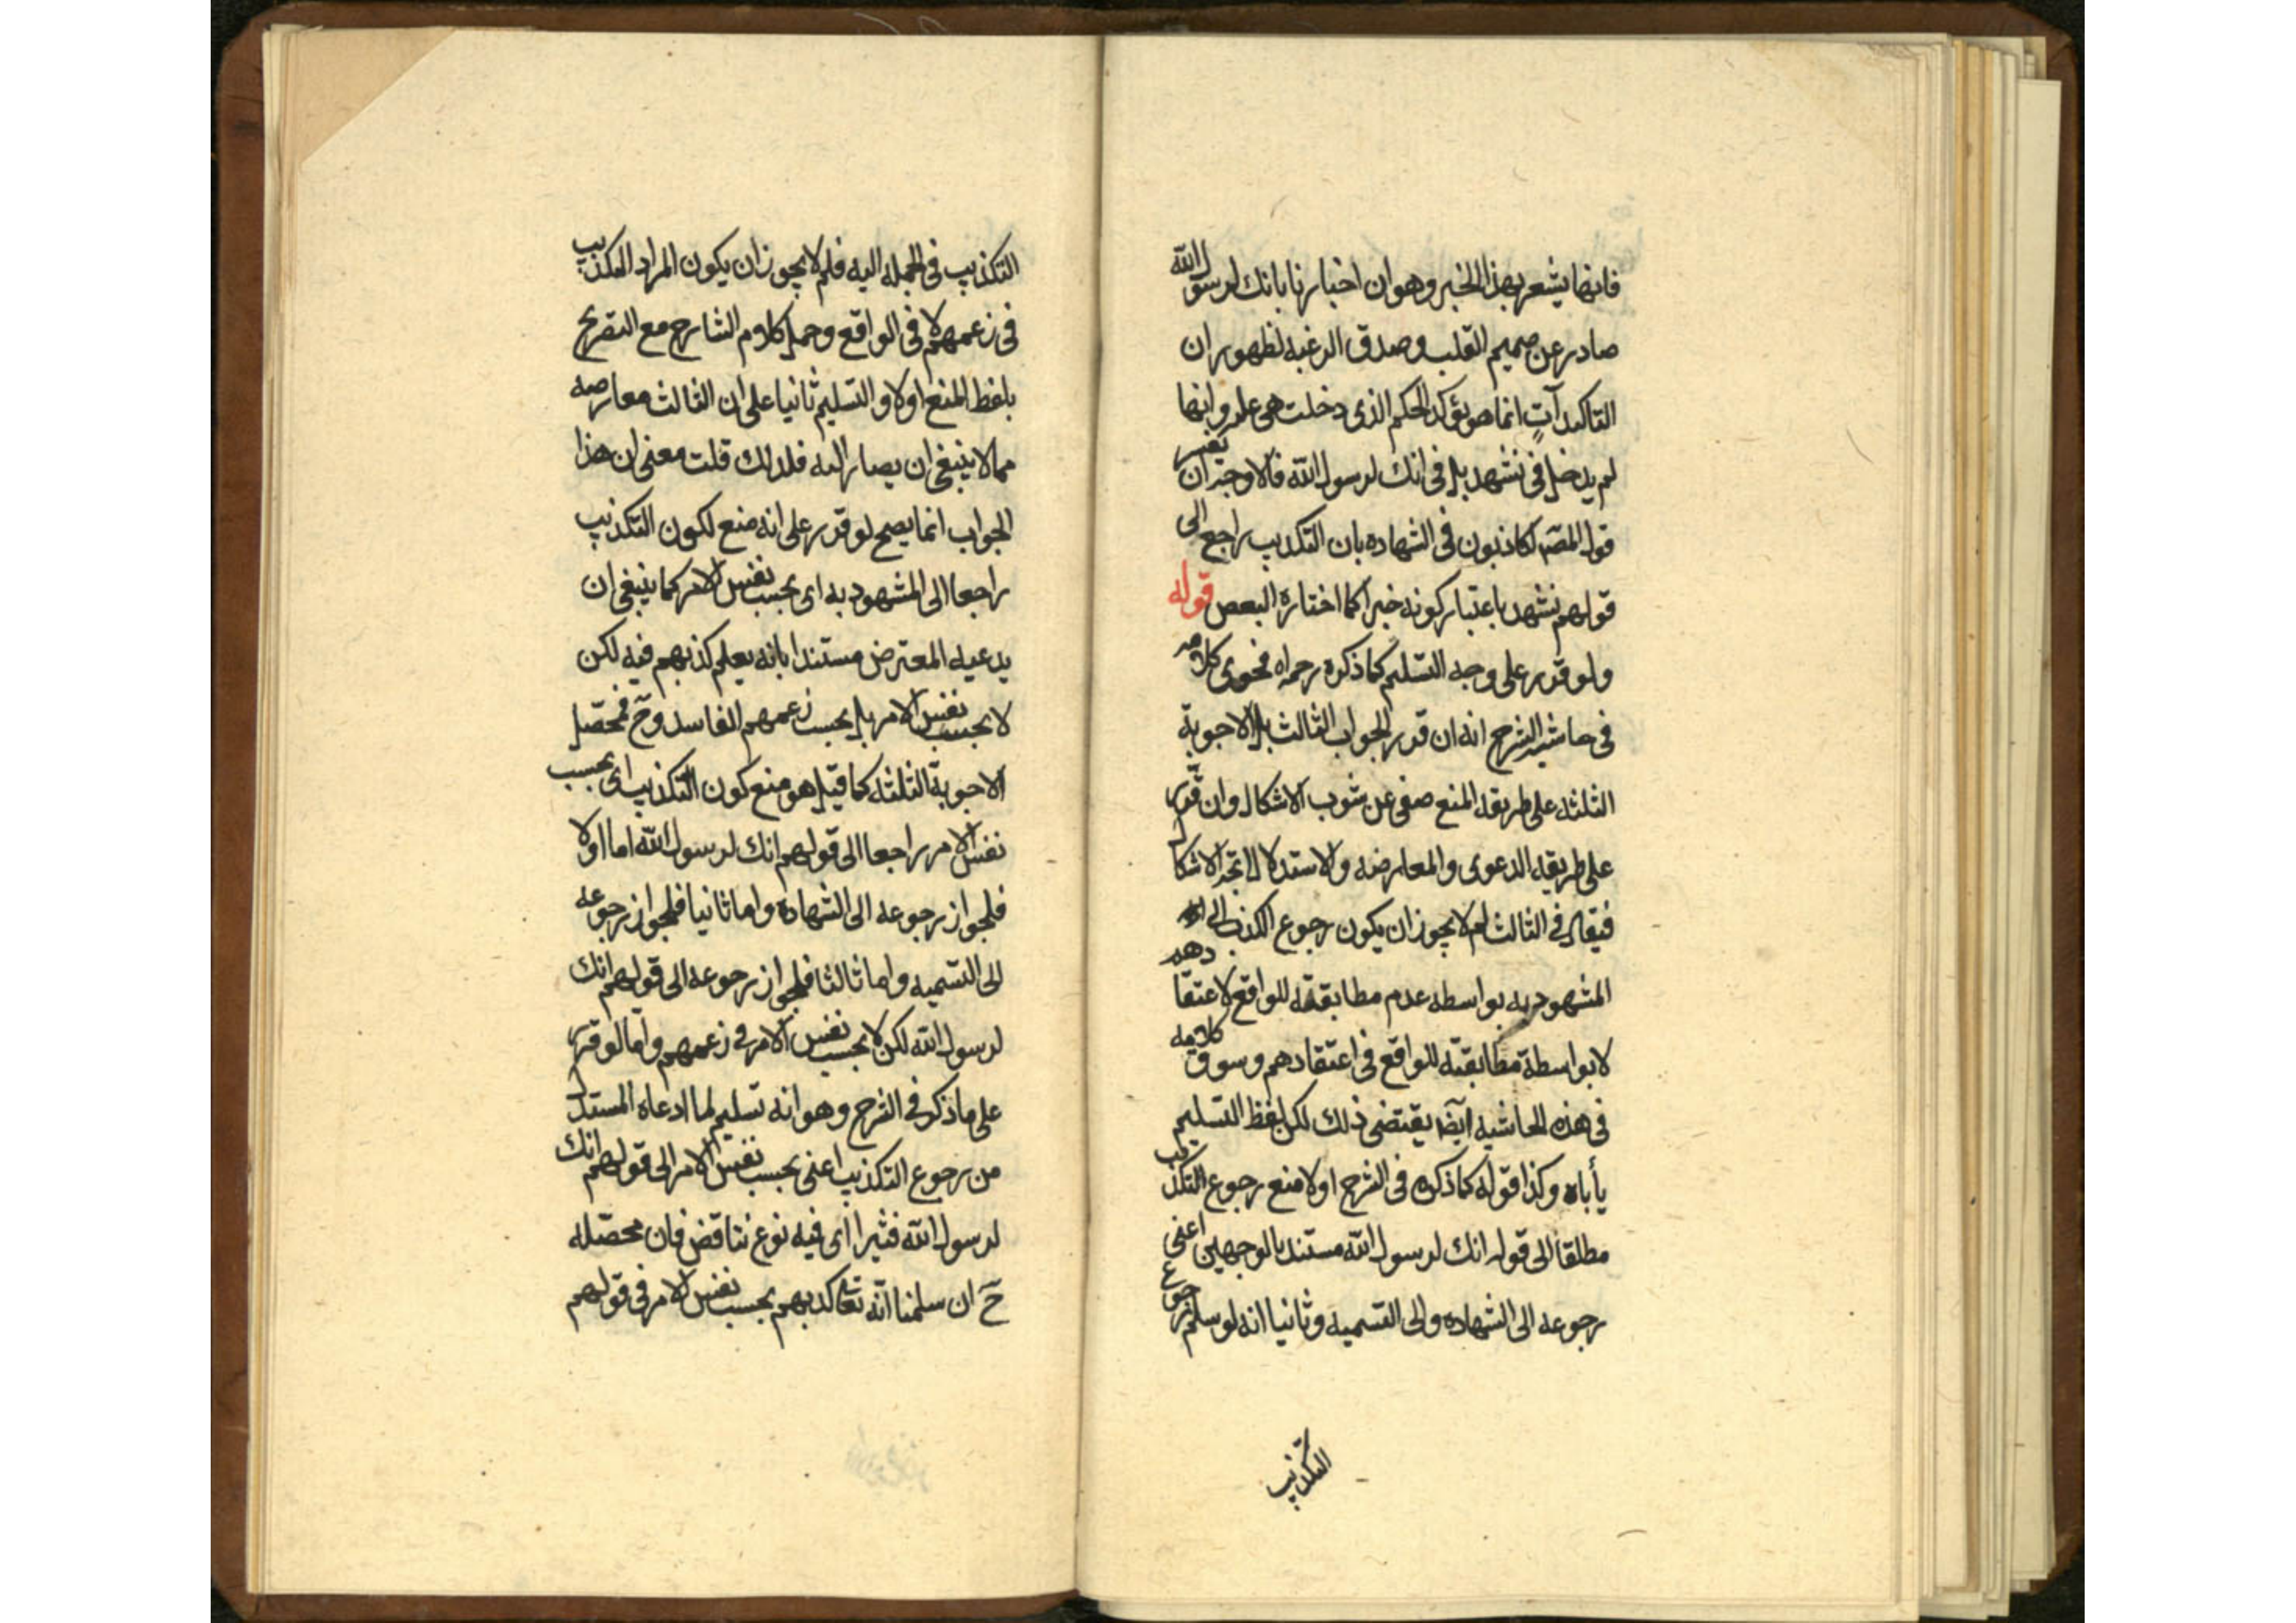 فانها يشعر بهذا الخبر وهو ان اخبارنا بانك لرسول الله
صادر عن صميم القلب وصدق الرغبه لظهور ان
التاكيدات انما هو يؤكد الحكم الذى دخلت هى عليه وانها
لم يدخل فى نشهد بل فى انك لرسول الله فالاوجه ان يفسر
قول المصـ لكاذبون فى الشهاده بان التكذيب راجع الى
قولهم نشهد باعتبار كونه خبرا كما اختاره البعض قوله
ولو قرر على وجه التسليم كما ذكره رحمه الله فحوى كلامه
فى حاشية الشرح انه ان قرر الجواب الثالث بل الاجوبة
الثلثه على طريقه المنع صفى عن شوب الاشكال وان قرر
على طريقه الدعوى والمعارضه والاستدلال اتجه الاشكال
فيقال فى الثالث لم لا يجوز ان يكون رجوع الكذب الى
المشهود به بواسطه عدم مطابقته للواقع لاعتقادهم
لا بواسطة مطابقته للواقع فى اعتقادهم وسوق كلامه
فى هذه الحاشيه ايضا يقتضى ذلك لكن لفظ التسليم
يأباه وكذا قوله كما ذكره فى الشرح اولا منع رجوع التكذيب
مطلقا الى قوله انك لرسول الله مستندا بالوجهين اعنى
رجوعه الى الشهاده والى التسميه وثانيا انه لو سلم رجوع
التكذيب
التكذيب فى الجمله اليه فلم لا يجوز ان يكون المراد التكذيب
فى زعمهم لا فى الواقع وحمل كلام الشارح مع التصريح
بلفظ المنع اولا والتسليم ثانيا على ان الثالث معارضه
مما لا ينبغى ان يصار اليه فلذلك قلت معنى ان هذا
الجواب انما يصح لو قرر على انه منع لكون التكذيب
راجعا الى المشهود به اى بحسب نفس الامر كما ينبغى ان
يدعيه المعترض مستندا بانه يعلم كذبهم فيه لكن
لا بحسب نفس الامر بل بحسب زعمهم الفاسد وح فمحصل
الاجوبة الثلثه كما قيل هو منع كون التكذيب اى بحسب
نفس الامر راجعا الى قولهم انك لرسول الله اما اولا
فلجواز رجوعه الى الشهادة واما ثانيا فلجواز رجوعه
الى التسميه واما ثالثا فلجواز رجوعه الى قولهم انك
لرسول الله لكن لا بحسب نفس الامر فى زعمهم واما لو قرر
على ما ذكر فى الشرح وهو انه تسليم لما ادعاه المستدل
من رجوع التكذيب اعنى بحسب نفس الامر الى قولهم انك
لرسول الله اى فيه نوع تناقض فان محصله
ح ان سلمنا انه تعا كذبهم بحسب نفس الامر فى قولهم